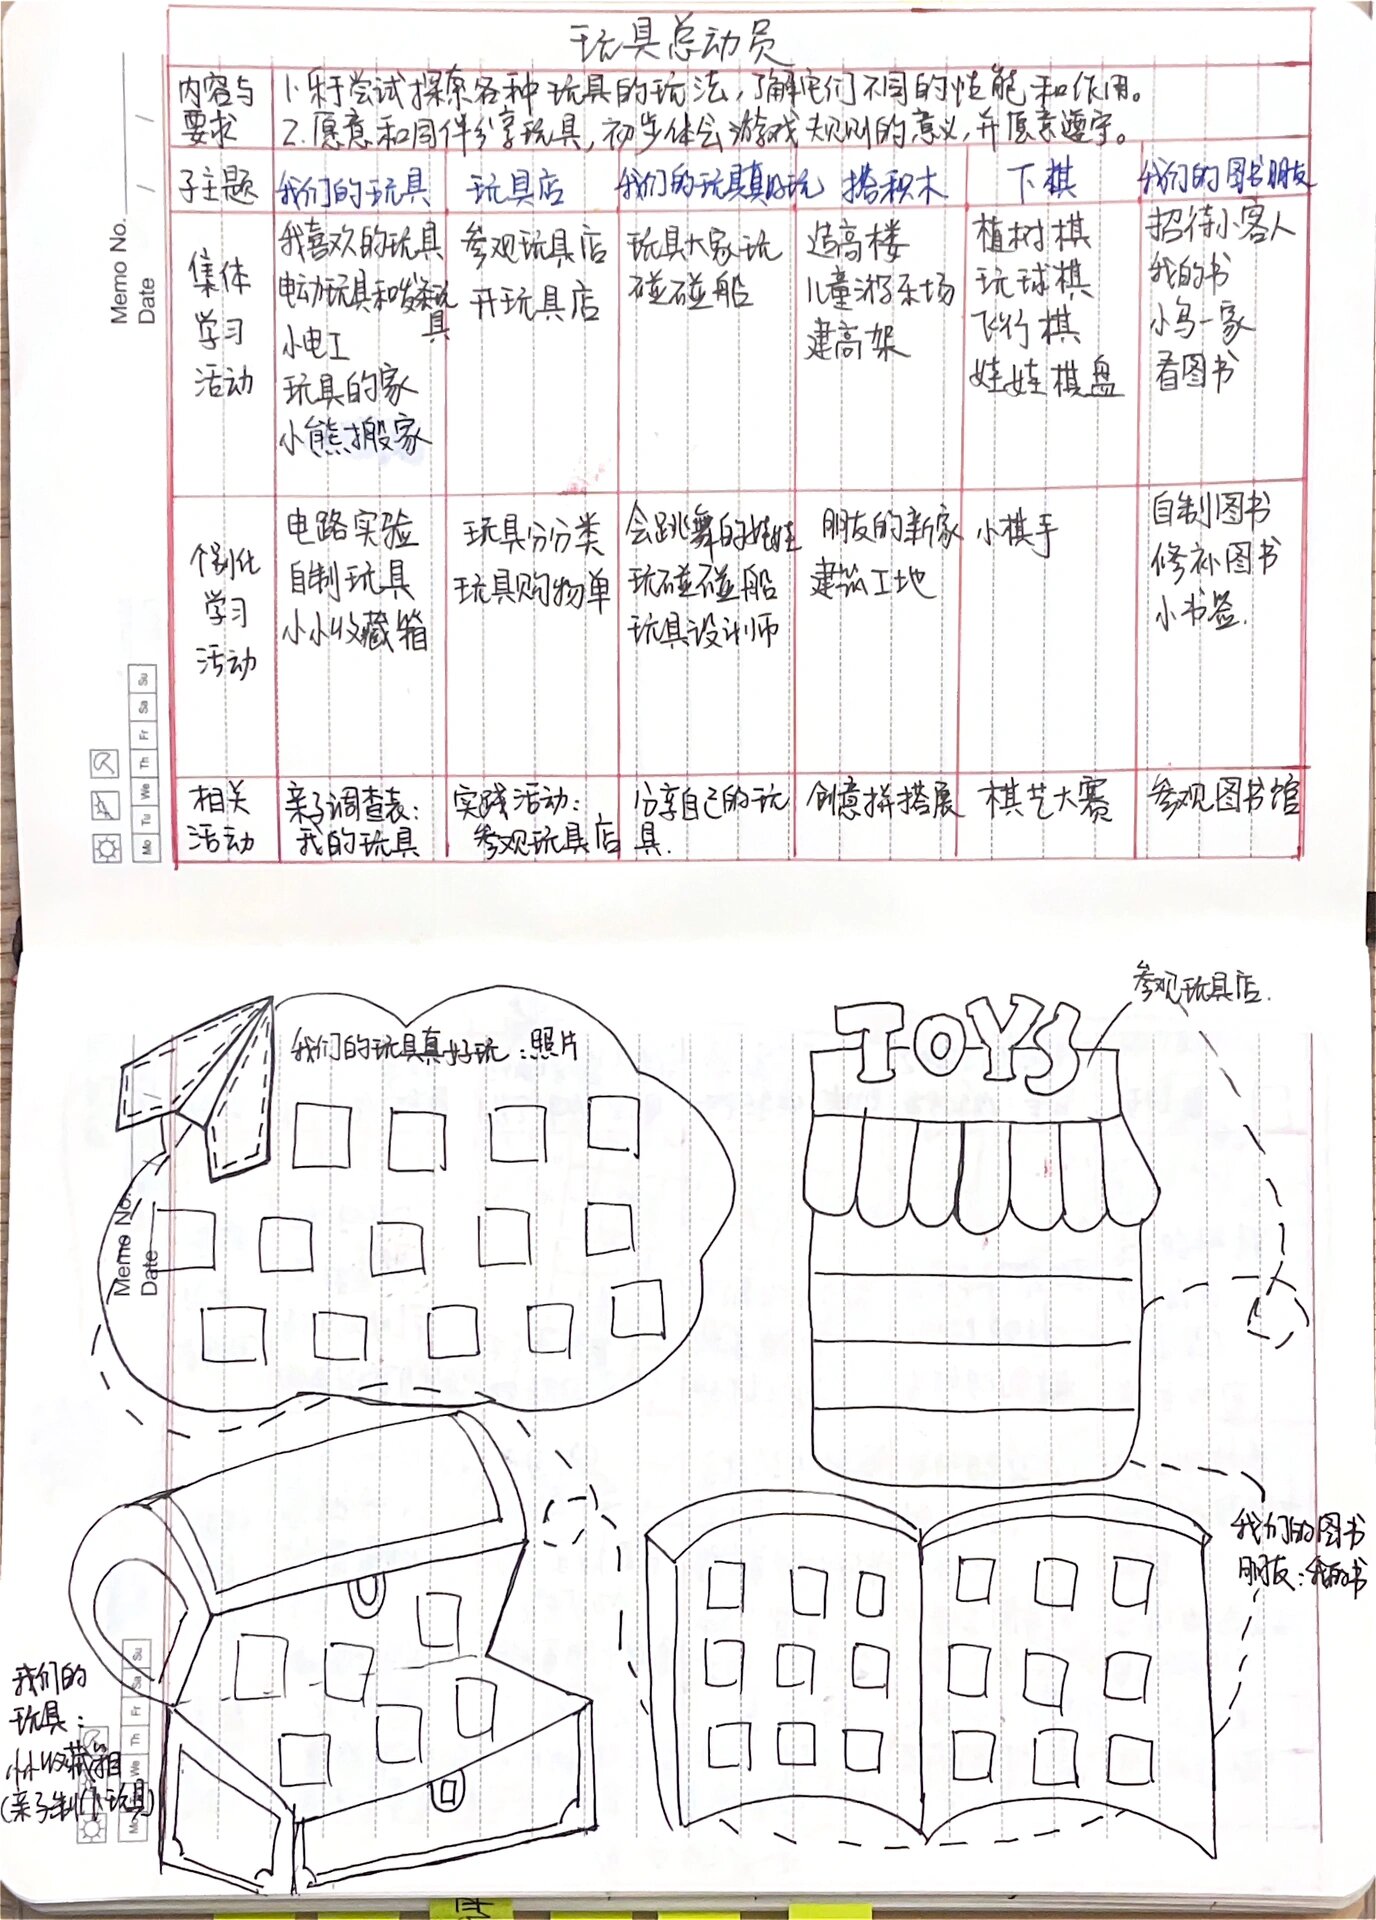 玩具总动员
内容与
要求
1.乐于尝试探索各种玩具的玩法，了解它们不同的性能和作用。
2.愿意和同伴分享玩具，初步体会游戏规则的意义，并愿意遵守。
子主题
我们的玩具
玩具店
我们的玩具真好玩
搭积木
下棋
我们的图书朋友
集体
学习
活动
我喜欢的玩具
电动玩具和发条玩
具
小电工
玩具的家
小熊搬家
参观玩具店
开玩具店
玩具大家玩
碰碰船
造高楼
儿童游乐场
建高架
植树棋
玩球棋
飞行棋
娃娃棋盘
招待小客人
我的书
小鸟一家
看图书
个别化
学习
活动
电路实验
自制玩具
小小收藏箱
玩具分分类
玩具购物单
会跳舞的娃娃
玩碰碰船
玩具设计师
朋友的新家
建筑工地
小棋手
自制图书
修补图书
小书签.
相关
活动
亲子调查表:
我的玩具
实践活动:
参观玩具店
分享自己的玩
具.
创意拼搭展
棋艺大赛
参观图书馆
Memo No.
Date / /
Mo Tu We Th Fr Sa Su
参观玩具店.
TOYS
我们的玩具真好玩:照片
Memo No.
Date
我们的图书
朋友:我的书
我们的
玩具:
小小收藏箱
(亲子制作玩具)
Mo We Th Fr Sa Su